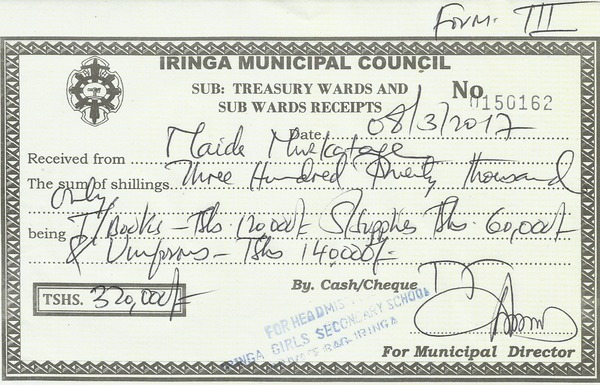 Form: III
IRINGA MUNICIPAL COUNCIL
SUB: TREASURY WARDS AND
SUB WARDS RECEIPTS
No 0150162
Date 08/3/2017
Received from Maide
The sum of shillings Three Hundred Twenty Thousand
only
being T/Books - Tshs 120,000/= S/Supplies Tshs 60,000/=
& Uniforms - Tshs 140,000/=
By. Cash/Cheque
TSHS. 320,000/=
FOR HEADMIS
IRINGA GIRLS SECONDARY SCHOOL
BAG IRINGA
For Municipal Director